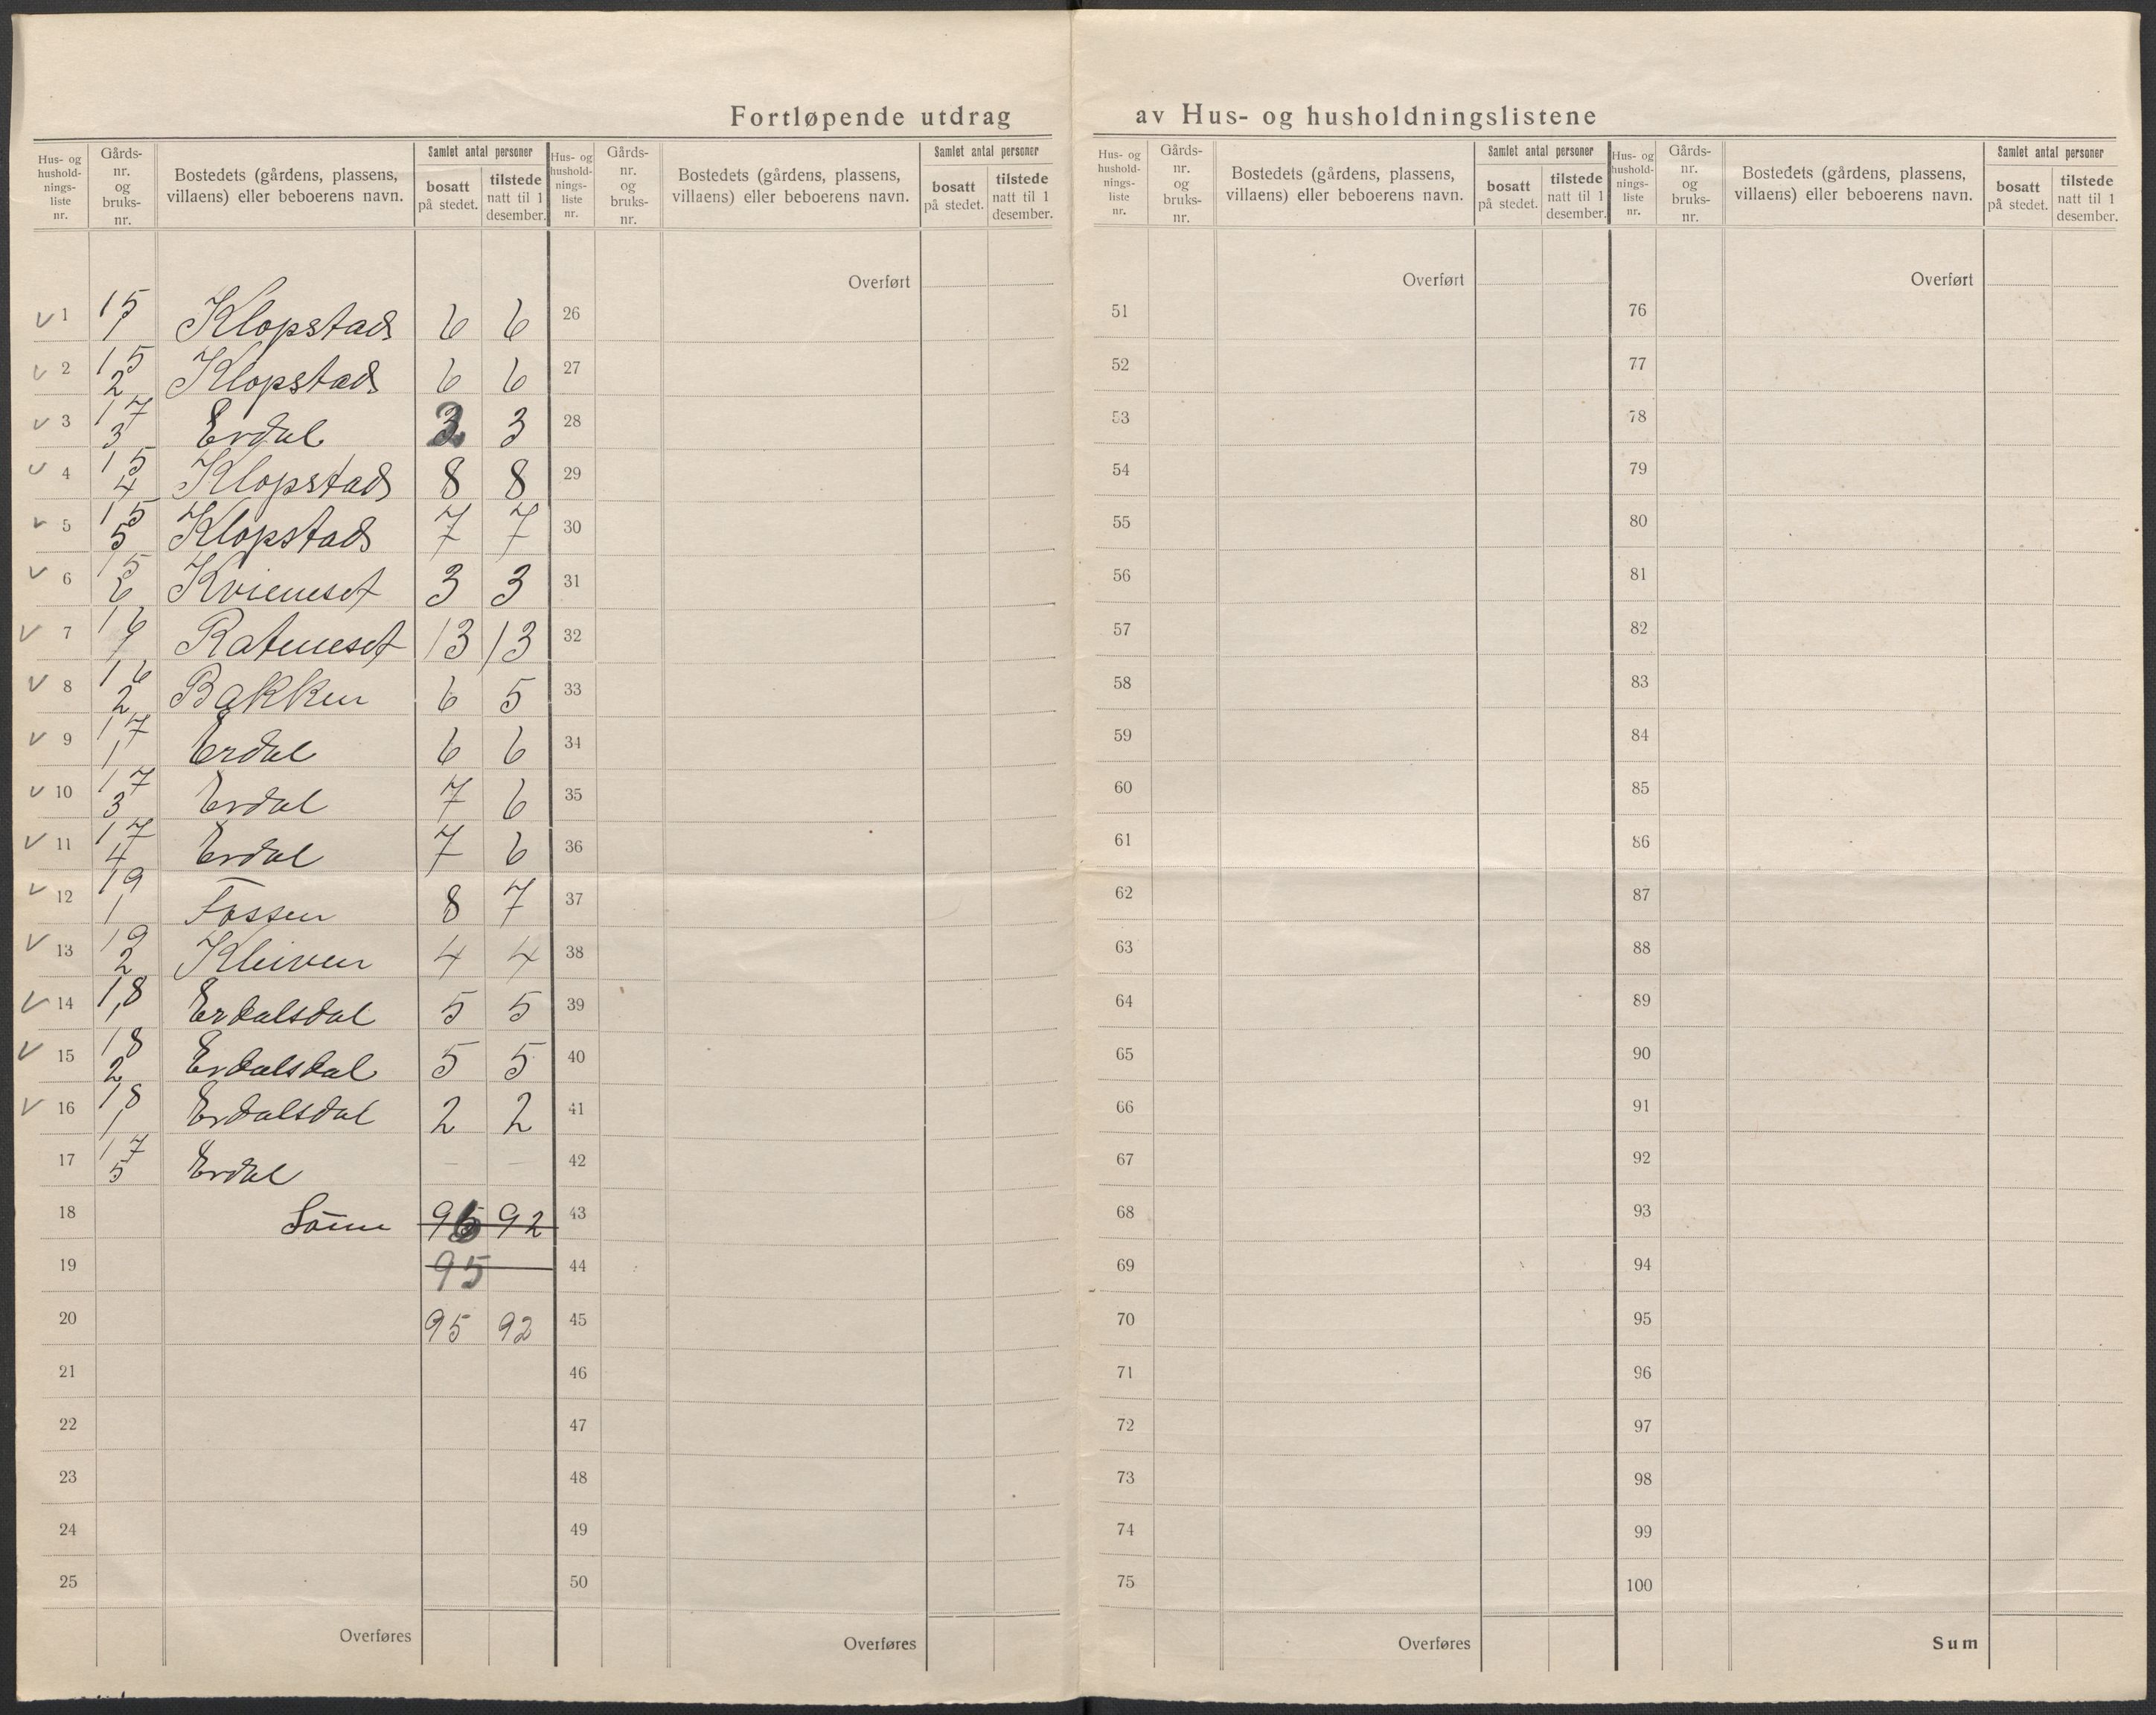 Fortløpende utdrag av Hus- og husholdningslistene
Hus- og hushold-nings-liste nr. Gårds-nr. og bruks-nr. Bostedets (gårdens, plassens, villaens) eller beboerens navn. Samlet antal personer bosatt på stedet. tilstede natt til 1 desember.
Hus- og hushold-nings-liste nr. Gårds-nr. og bruks-nr. Bostedets (gårdens, plassens, villaens) eller beboerens navn. Samlet antal personer bosatt på stedet. tilstede natt til 1 desember.
Hus- og hushold-nings-liste nr. Gårds-nr. og bruks-nr. Bostedets (gårdens, plassens, villaens) eller beboerens navn. Samlet antal personer bosatt på stedet. tilstede natt til 1 desember.
Hus- og hushold-nings-liste nr. Gårds-nr. og bruks-nr. Bostedets (gårdens, plassens, villaens) eller beboerens navn. Samlet antal personer bosatt på stedet. tilstede natt til 1 desember.
Overført Overført Overført
1 15/1 Klopstad 6 6 26 51 76
2 15/2 Klopstad 6 6 27 52 77
3 17/3 Erdal 3 3 28 53 78
4 15/4 Klopstad 8 8 29 54 79
5 15/5 Klopstad 7 7 30 55 80
6 15/6 Kvieneset 3 3 31 56 81
7 16/1 Ratneset 13 13 32 57 82
8 16/2 Bakken 6 5 33 58 83
9 17/1 Erdal 6 6 34 59 84
10 17/3 Erdal 7 6 35 60 85
11 17/4 Erdal 7 6 36 61 86
12 19/1 Fossen 8 7 37 62 87
13 19/2 Kleiven 4 4 38 63 88
14 18/1 Erdalsdal 5 5 39 64 89
15 18/2 Erdalsdal 5 5 40 65 90
16 18/1 Erdalsdal 2 2 41 66 91
17 17/5 Erdal — — 42 67 92
18 Sum 96 92 43 68 93
19 95 44 69 94
20 95 92 45 70 95
21 46 71 96
22 47 72 97
23 48 73 98
24 49 74 99
25 50 75 100
Overføres Overføres Overføres Sum